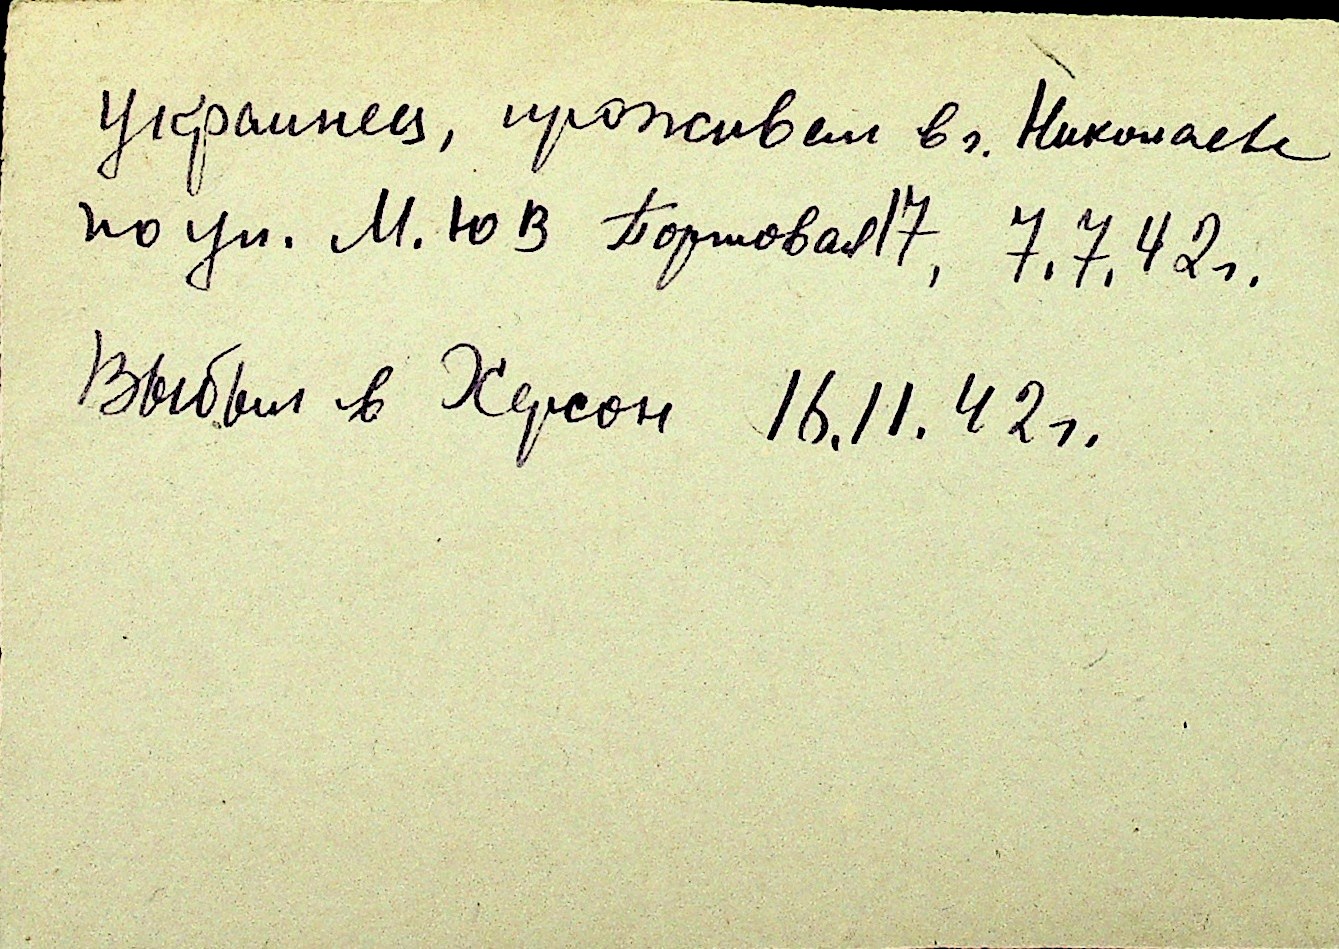 украинец, проживал в г. Николаеве
по ул. М. ЮВ Портовая 17, 7.7.42г.
Выбыл в Херсон 16.11.42г.